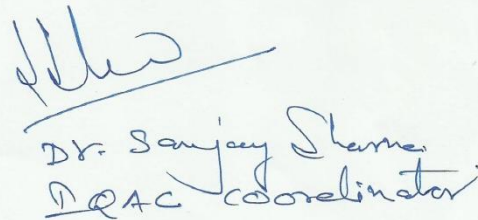 Dr. Sanjay Sharma
IQAC Coordinator